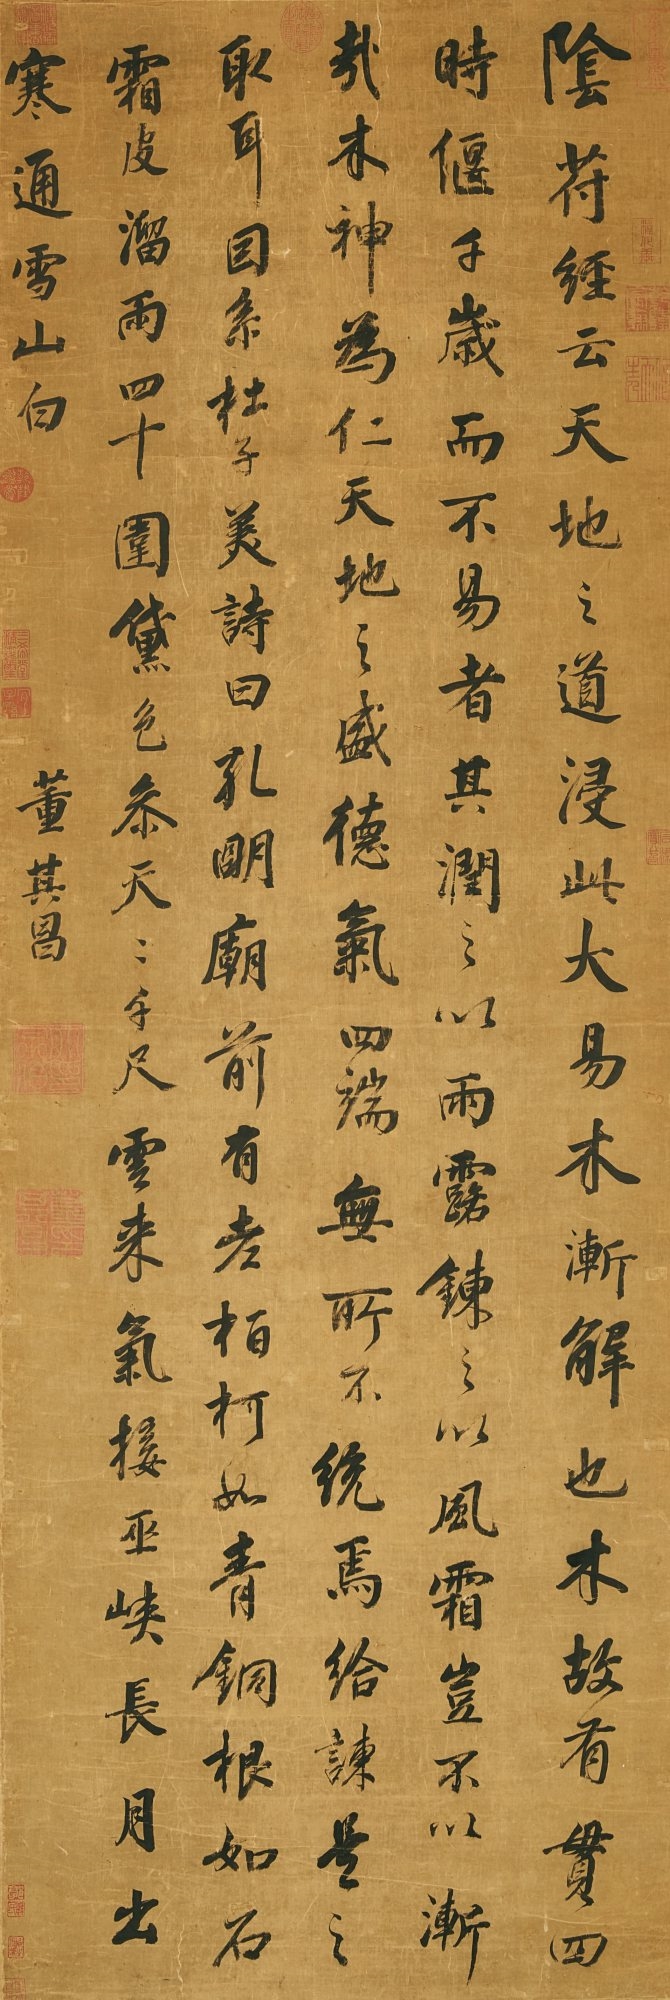 陰苻經云天地之道浸此大易木漸解也木故有貫四
時偃千歲而不易者其潤之以雨露鍊之以風霜豈不以漸
哉木神為仁天地之盛德氣四端無所不統焉給諫是之
取耳因系杜子美詩曰孔明廟前有老柏柯如青銅根如石
霜皮溜雨四十圍黛色參天二千尺雲來氣接巫峽長月出
寒通雪山白
董其昌